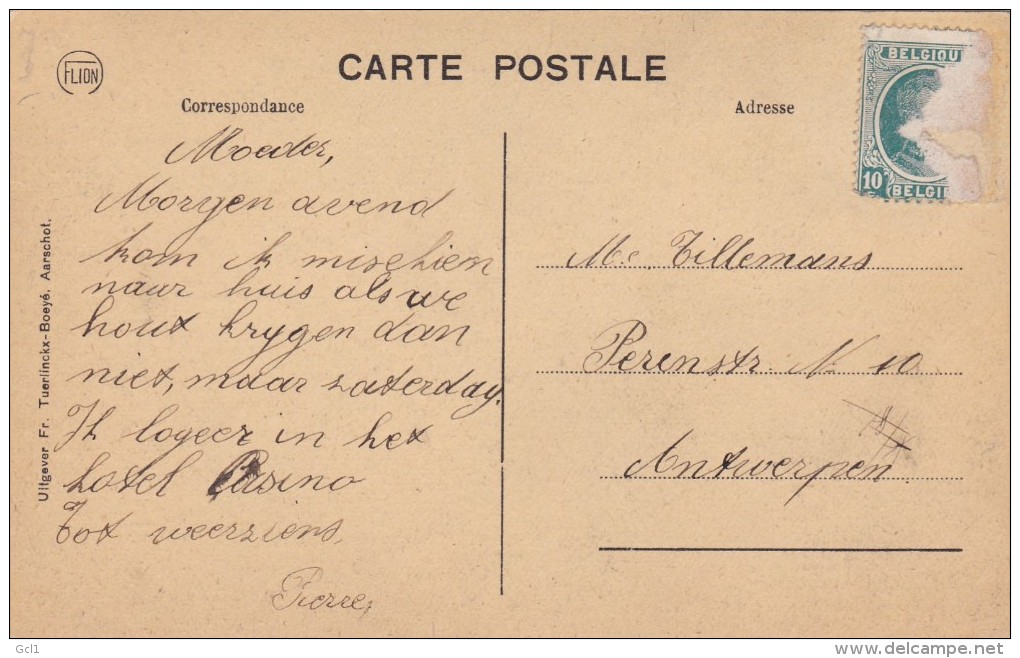 FLION
CARTE POSTALE
Correspondance
Adresse
BELGIQU
10
BELGI
Moeder,
Morgen avend
kom ik mischien
naar huis als we
hout krygen dan
niet, maar zaterdag.
Ik logeer in het
hotel Casino
Tot weerziens,
Pierre,
Me. Tillemans
Perenstr N 10
Antwerpen
Uitgever Fr. Tuerlinckx-Boeyé, Aarschot.
Gcl1
delcampe.net